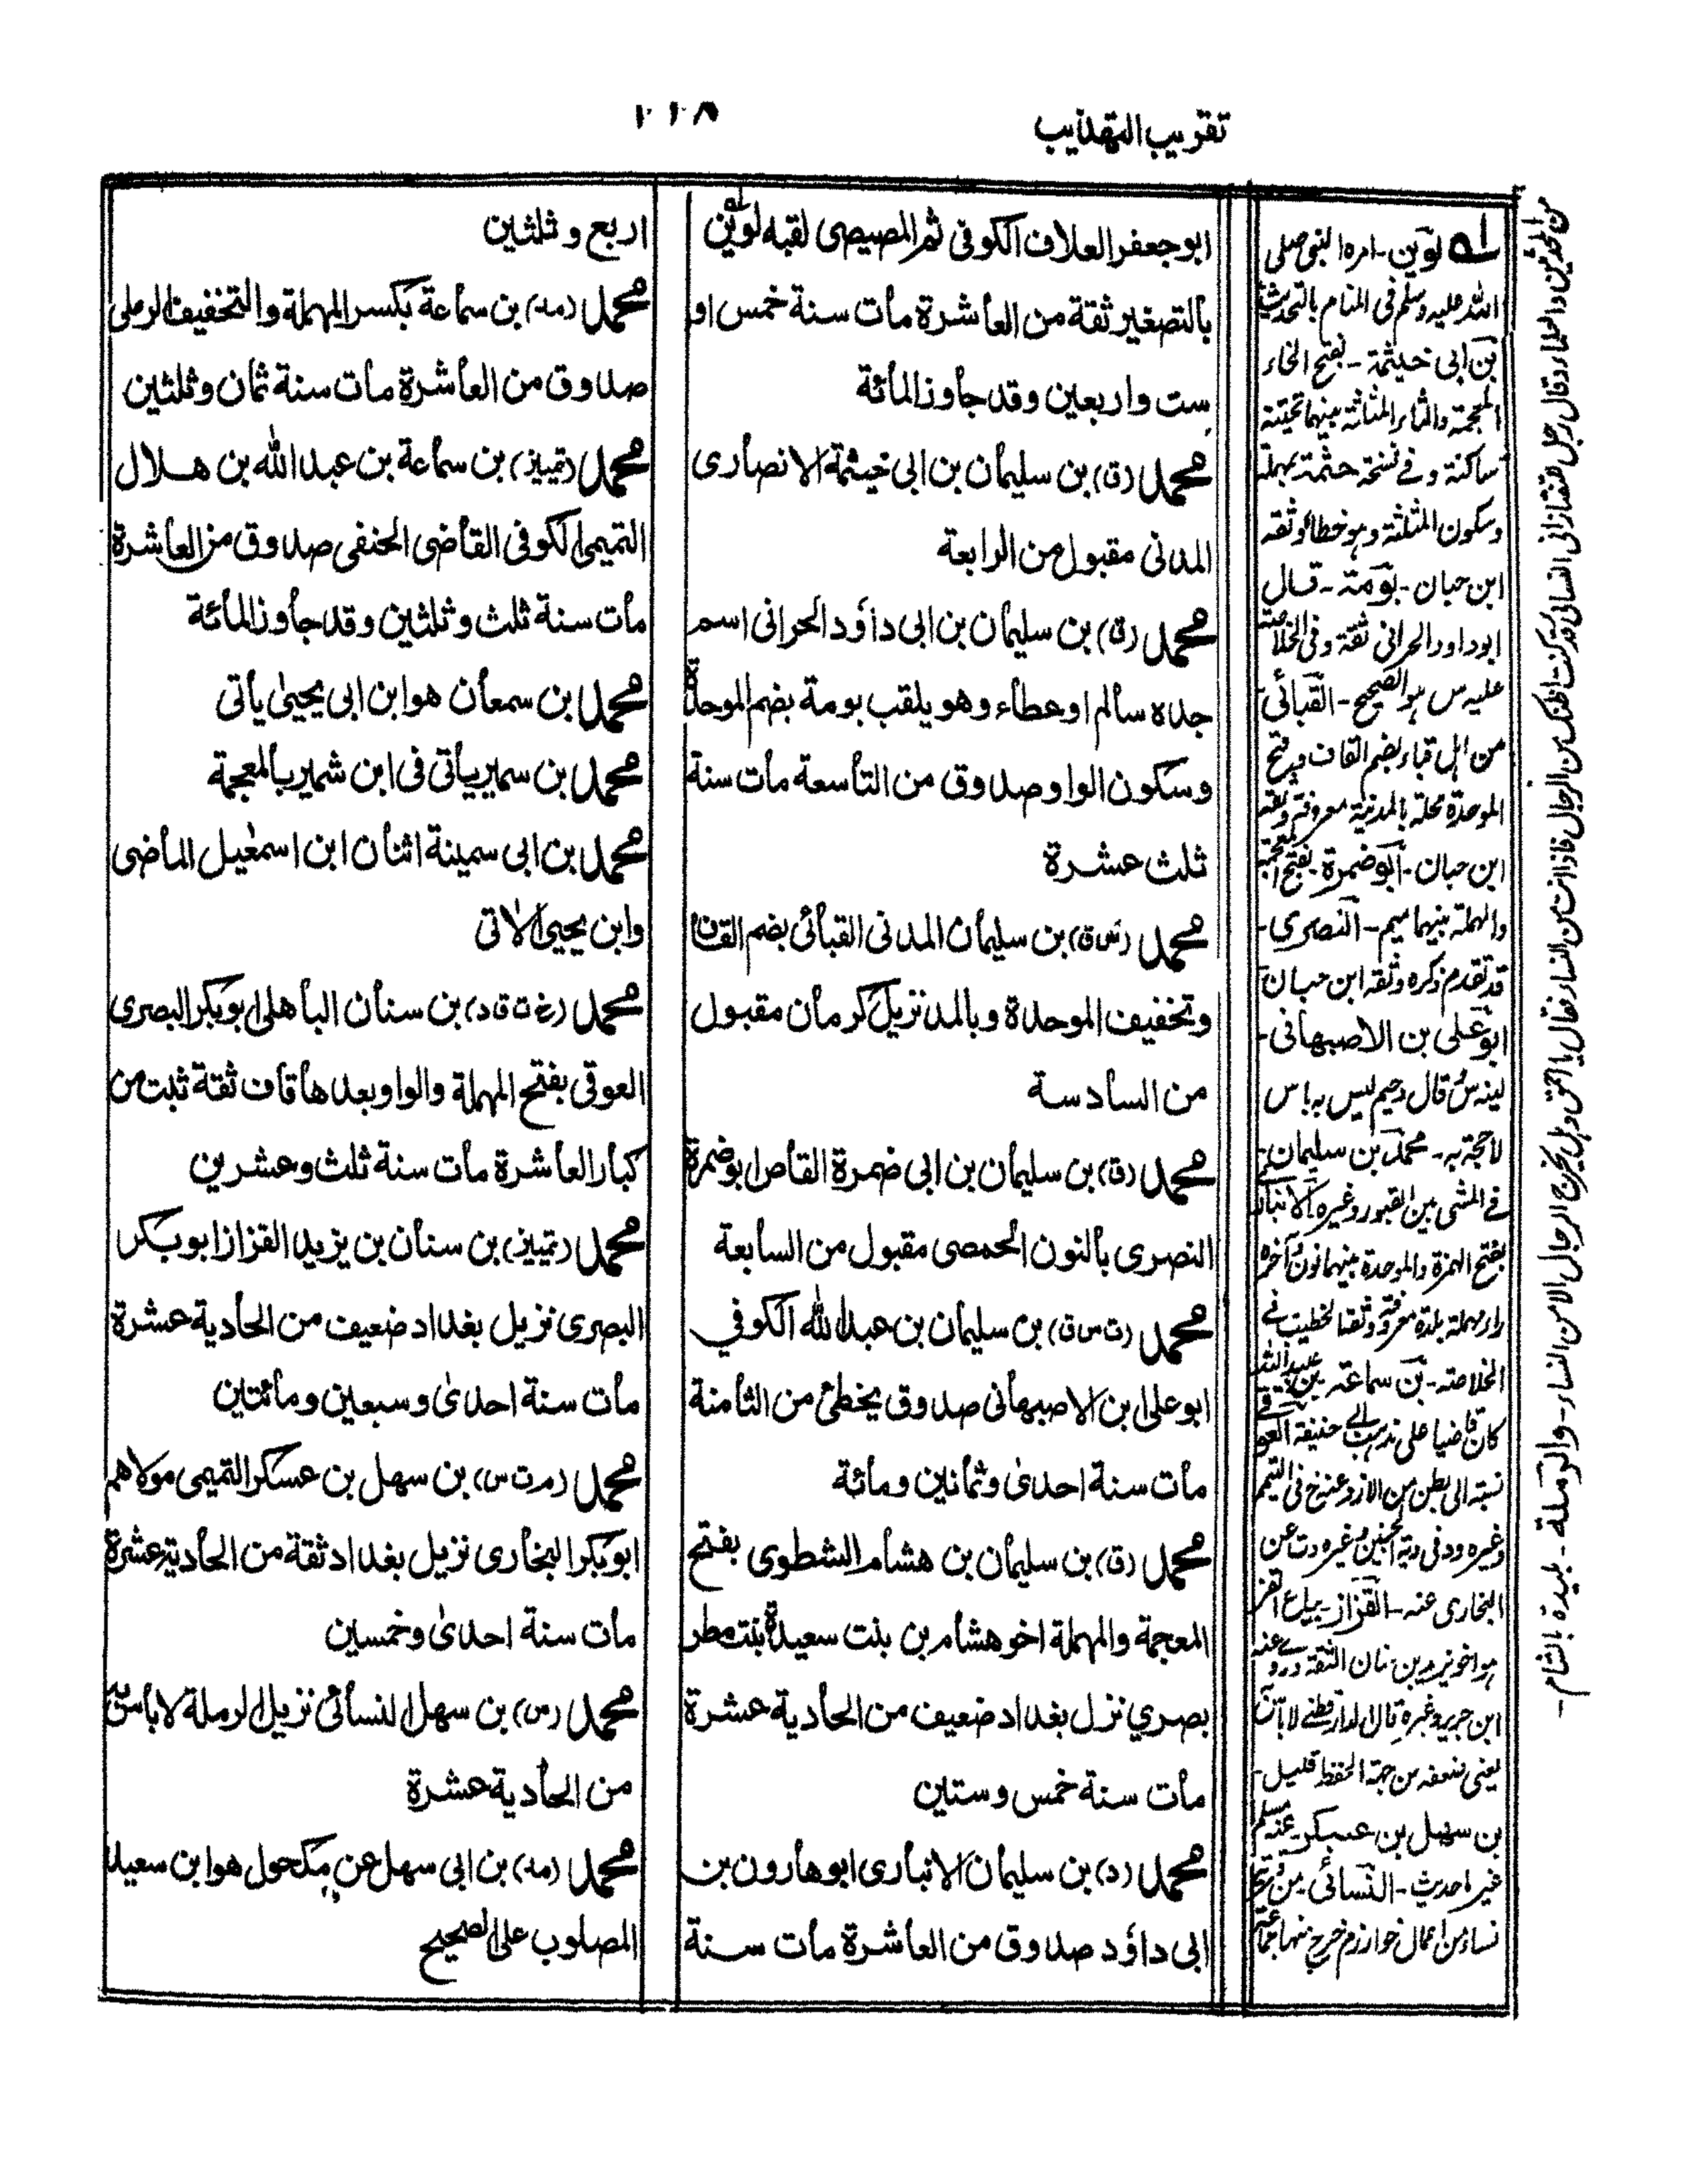 تقريب التهذيب
ابوجعفر العلاف الكوفى ثم المصيصى لقبه لوين
بالتصغير ثقة من العاشرة مات سنة خمس او
ست واربعين وقد جاوز المائة
محمد (ق) بن سليمان بن ابى خيثمة الانصارى
المدنى مقبول من الرابعة
محمد (ق) بن سليمان بن ابى داؤد الحرانى اسم
جده سالم اوعطاء وهو يلقب بومة بضم الموحدة
وسكون الواو صدوق من التاسعة مات سنة
ثلث عشرة
محمد (س ق) بن سليمان المدنى القبائى بضم القاف
وتخفيف الموحدة وبالمد نزيل كرمان مقبول
من السادسة
محمد (ق) بن سليمان بن ابى ضمرة القاص ابوضمرة
النصرى بالنون الحمصى مقبول من السابعة
محمد (ت س ق) بن سليمان بن عبدالله الكوفي
ابوعلى ابن الاصبهانى صدوق يخطئ من الثامنة
مات سنة احدى وثمانين ومائة
محمد (ق) بن سليمان بن هشام الشطوى بفتح
المعجمة والمهملة اخو هشام بن بنت سعيدة بنت مطر
بصري نزل بغداد ضعيف من الحادية عشرة
مات سنة خمس وستين
محمد (د) بن سليمان الانبارى ابوهارون بن
ابى داؤد صدوق من العاشرة مات سنة
اربع وثلثين
محمد (مد) بن سماعة بكسر المهملة والتخفيف الرملى
صدوق من العاشرة مات سنة ثمان وثلثين
محمد (تمييز) بن سماعة بن عبد الله بن هلال
التميمى الكوفى القاضى الحنفى صدوق من العاشرة
مات سنة ثلث وثلثين وقد جاوز المائة
محمد بن سمعان هو ابن ابى يحيىٰ يأتى
محمد بن سمير يأتى فى ابن شمير بالمعجمة
محمد بن ابى سمينة اثنان ابن اسمٰعيل الماضى
وابن يحيى الاٰتى
محمد (خ ت ق د) بن سنان الباهلى ابوبكر البصرى
العوقى بفتح المهملة والواو بعدها قاف ثقة ثبت من
كبار العاشرة مات سنة ثلث وعشرين
محمد (تمييز) بن سنان بن يزيد القزاز ابوبكر
البصرى نزيل بغداد ضعيف من الحادية عشرة
مات سنة احدىٰ وسبعين ومائتين
محمد (م ت س) بن سهل بن عسكر التميمى مولاهم
ابوبكر البخارى نزيل بغداد ثقة من الحادية عشرة
مات سنة احدىٰ وخمسين
محمد (س) بن سهل النسائى نزيل الرملة لاباس به
من الحادية عشرة
محمد (مد) بن ابى سهل عن مكحول هو ابن سعيد
المصلوب على الصحيح
لوين - امره النبى صلى
الله عليه وسلم فى المنام بالتحديث
بن ابى خيثمة - بفتح الخاء
المعجمة والثاء المثلثة بينهما تحتية
ساكنة وفے نسخة حثمة بمهملة
وسكون المثلثة وهو خطأ وثقه
ابن حبان - بومة - قال
ابوداود الحرانى ثقة وفى الخلاصة
عليه س هو الصحيح - القبائى
من اہل قباء بضم القاف وفتح
الموحدة محلة بالمدينة معروفة وثقه
ابن حبان - ابوضمرة بفتح المعجمة
والمهملة بينهما ميم - النصرى -
قد تقدم ذكره وثقه ابن حبان
ابوعلى بن الاصبهانى -
لينه س قال دحيم ليس به باس
لا حجة به - محمد بن سليمان -
فے المشى بين القبور وغيره الانبارى
بفتح الهمزة والموحدة بينهما نون آخره
راء مهملة بلدة معروفة وثقه الخطيب فے
الخلاصة - بن سماعة بن عبدالله
كان قاضيا على مذهب ابے حنيفة العوقى
نسبة الى بطن من الازد عنه خ فى التيمم
البخارى عنه - القزاز بياع القز
يعنى ضعفه من جهة الحفظ قليل -
بن سهل بن عسكر عنه مسلم
غير احدیث - النسائى من
نساء من اعمال خوارزم خرج منها جماعة
من المحدثين والعلماء وقال رجل للتفتازانى النسائى قد كنت اظنك من الرجال فاذا انت من النساء فقال يا احمق وہل يخرج الرجال الا من النساء - والرملة - بليدة بالشام -